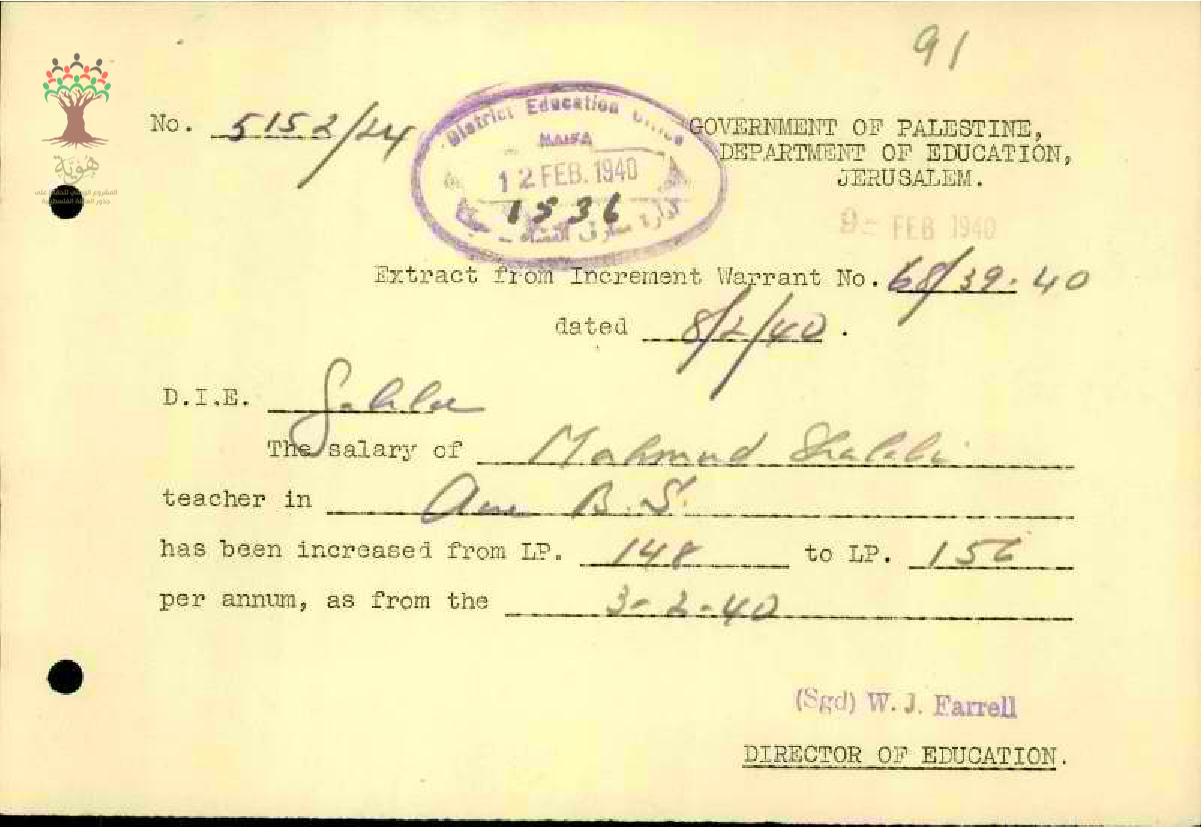 91
هوية
المشروع الوطني للحفاظ على
جذور العائلة الفلسطينية
No. 5152/24
District Education Office
HAIFA
12 FEB. 1940
1536
ادارة معارف القضاء - حيفا
GOVERNMENT OF PALESTINE,
DEPARTMENT OF EDUCATION,
JERUSALEM.
9- FEB 1940
Extract from Increment Warrant No. 68/39-40
dated 8/2/40.
D.I.E. Galilee
The salary of Mahmud Shalabi
teacher in B.S.
has been increased from LP. 148 to LP. 156
per annum, as from the 3-2-40
(Sgd) W. J. Farrell
DIRECTOR OF EDUCATION.